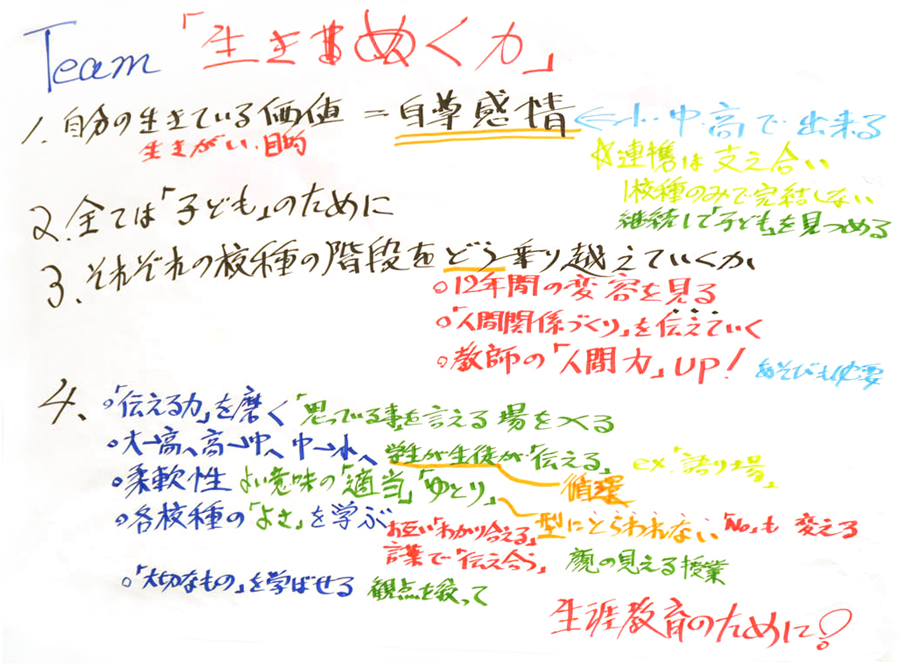 Team「生きぬく力」
1. 自分の生きている価値 = 自尊感情 ← 小・中・高で出来る
生きがい、目的
☆連携は支え合い
1校種のみで完結しない
継続して「子ども」を見つめる
2. 全ては「子ども」のために
3. それぞれの校種の階段をどう乗り越えていくか
○12年間の変容を見る
○「人間関係づくり」を伝えていく
○教師の「人間力」UP! あそびも必要
4. ○「伝える力」を磨く「思っている事を言える場をつくる
○大→高、高→中、中→小、学生が生徒が「伝える」 ex.「語り場」
○柔軟性 よい意味の「適当」「ゆとり」 循環
○各校種の「よさ」を学ぶ 型にとらわれない 「No」も変える
お互い「わかり合える」
言葉で「伝え合う」 顔の見える授業
○「大切なもの」を学ばせる 観点を絞って
生涯教育のために!